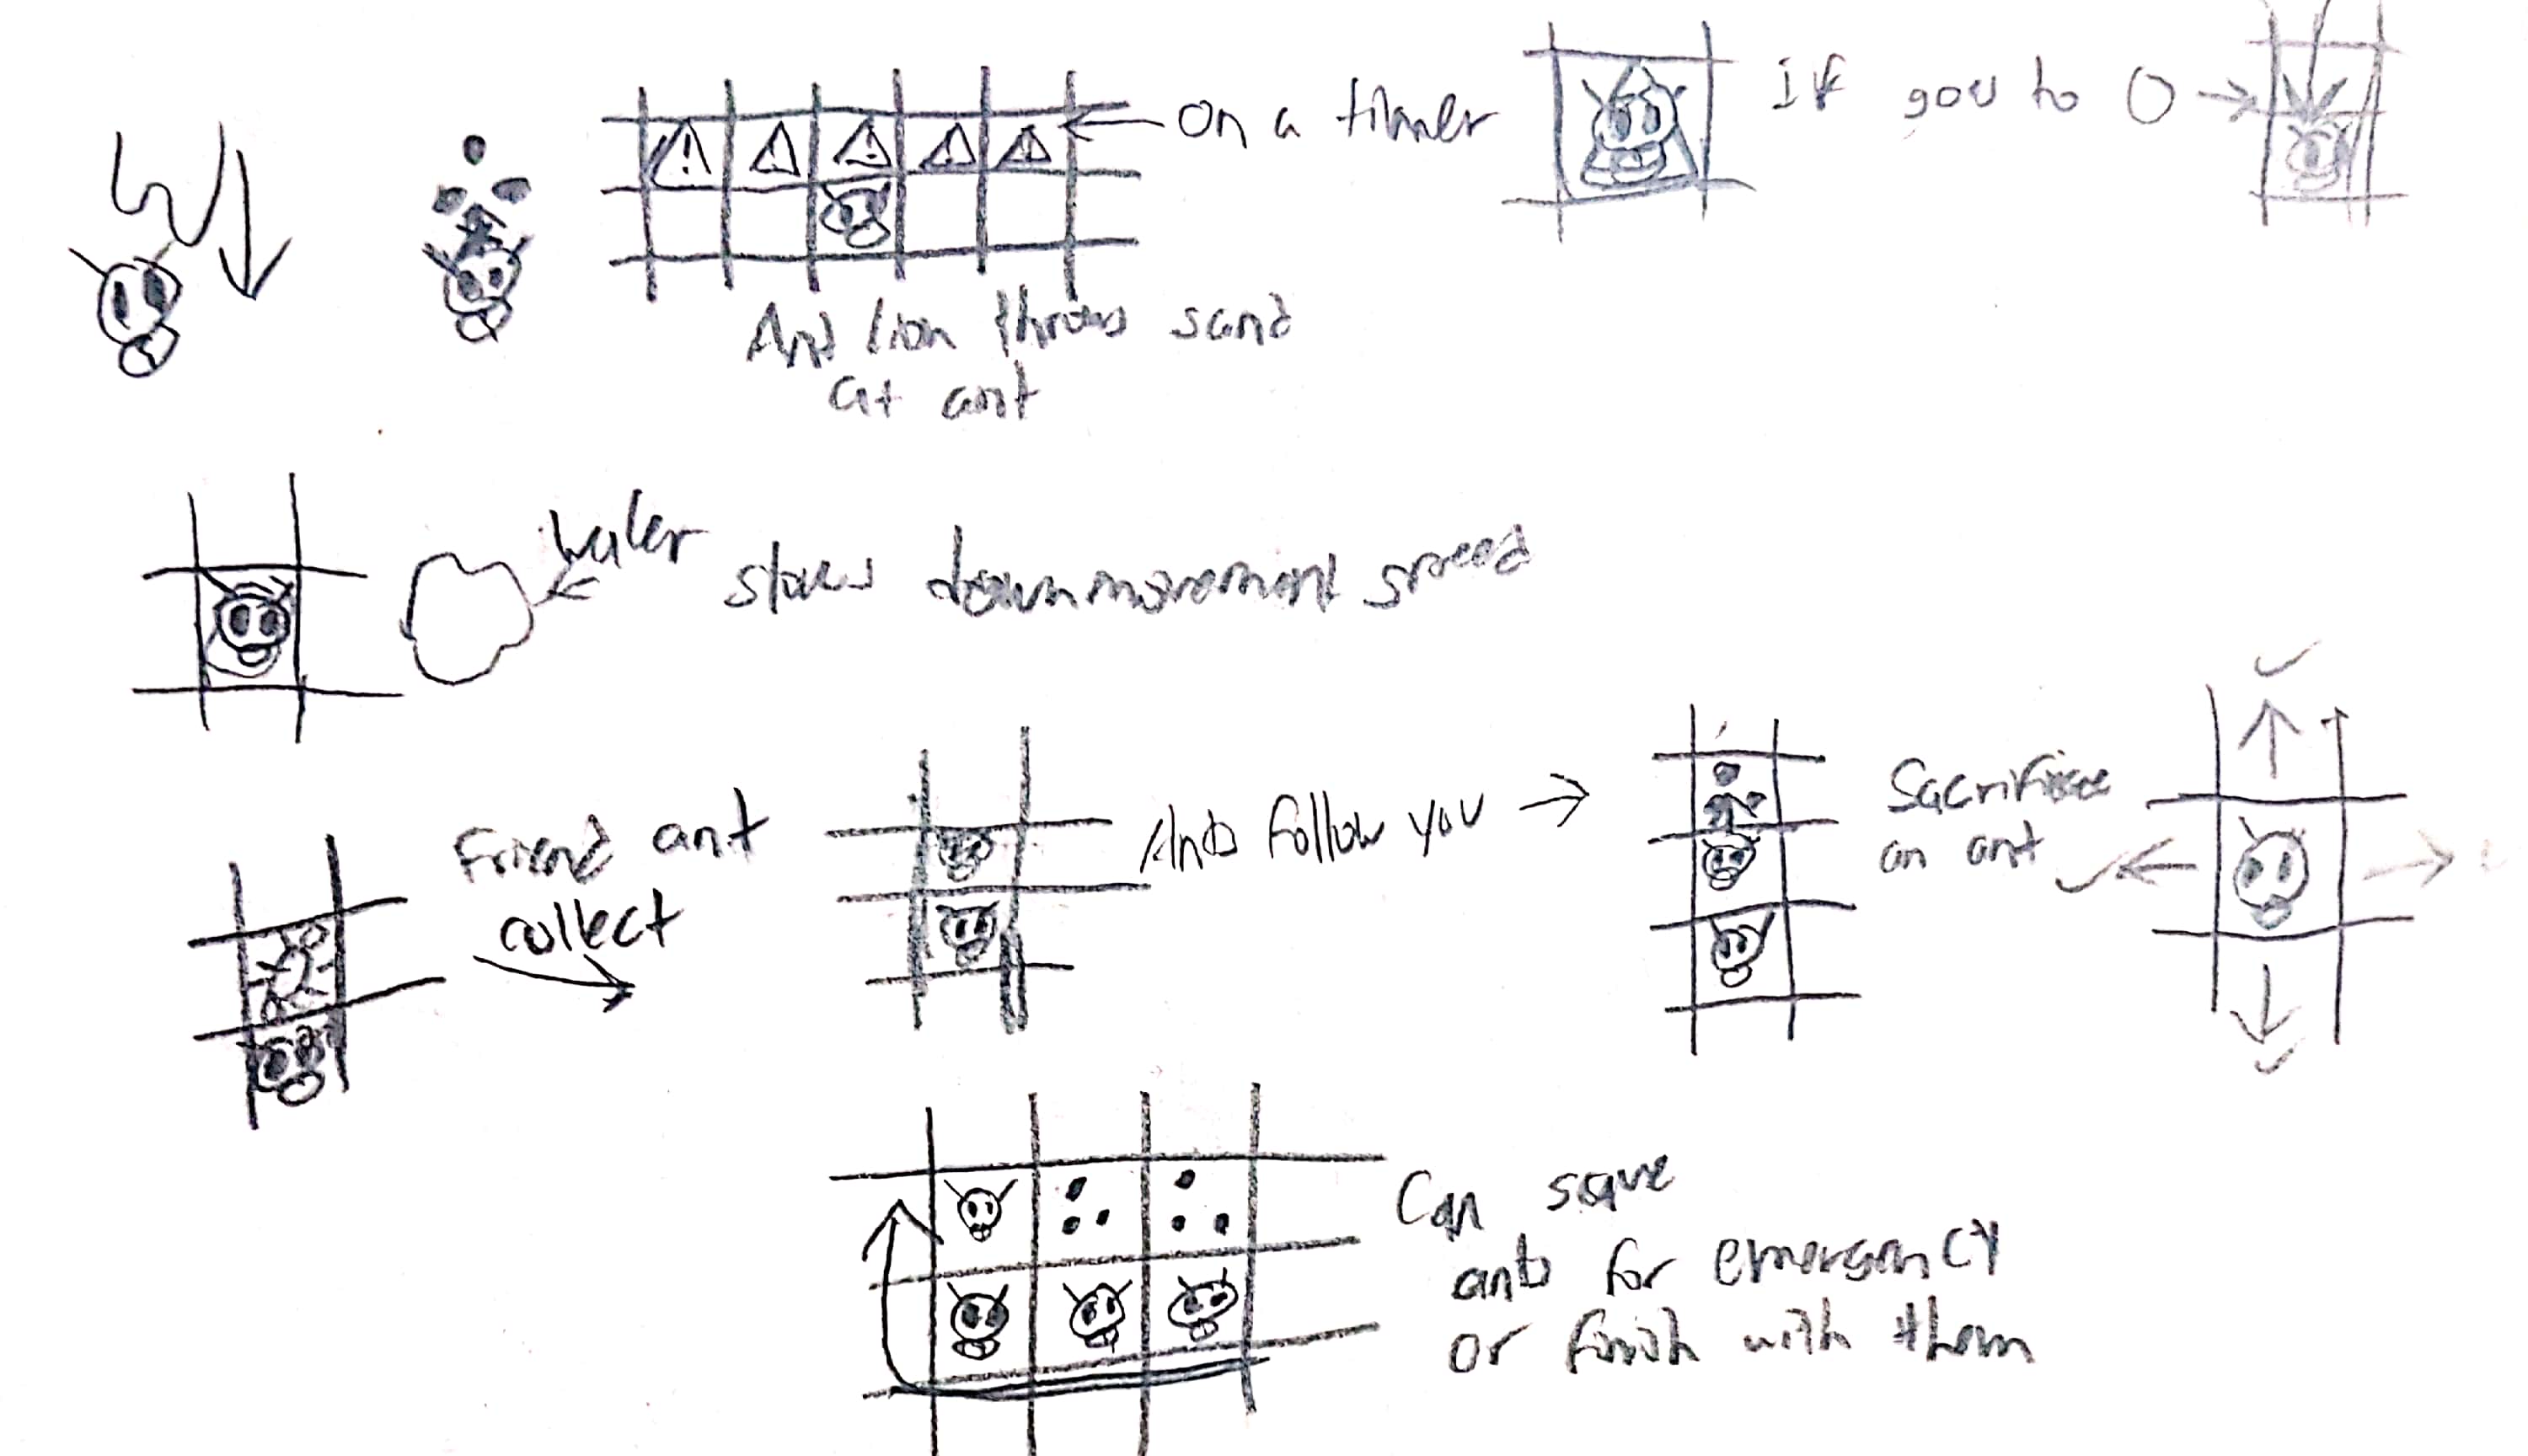 On a timer
If gou to 0
Ant lion throws sand
at ant
water
slows down movement speed
Friend ant
collect
Ants follow you
Sacrifice
an ant
Can save
ants for emergency
or finish with them